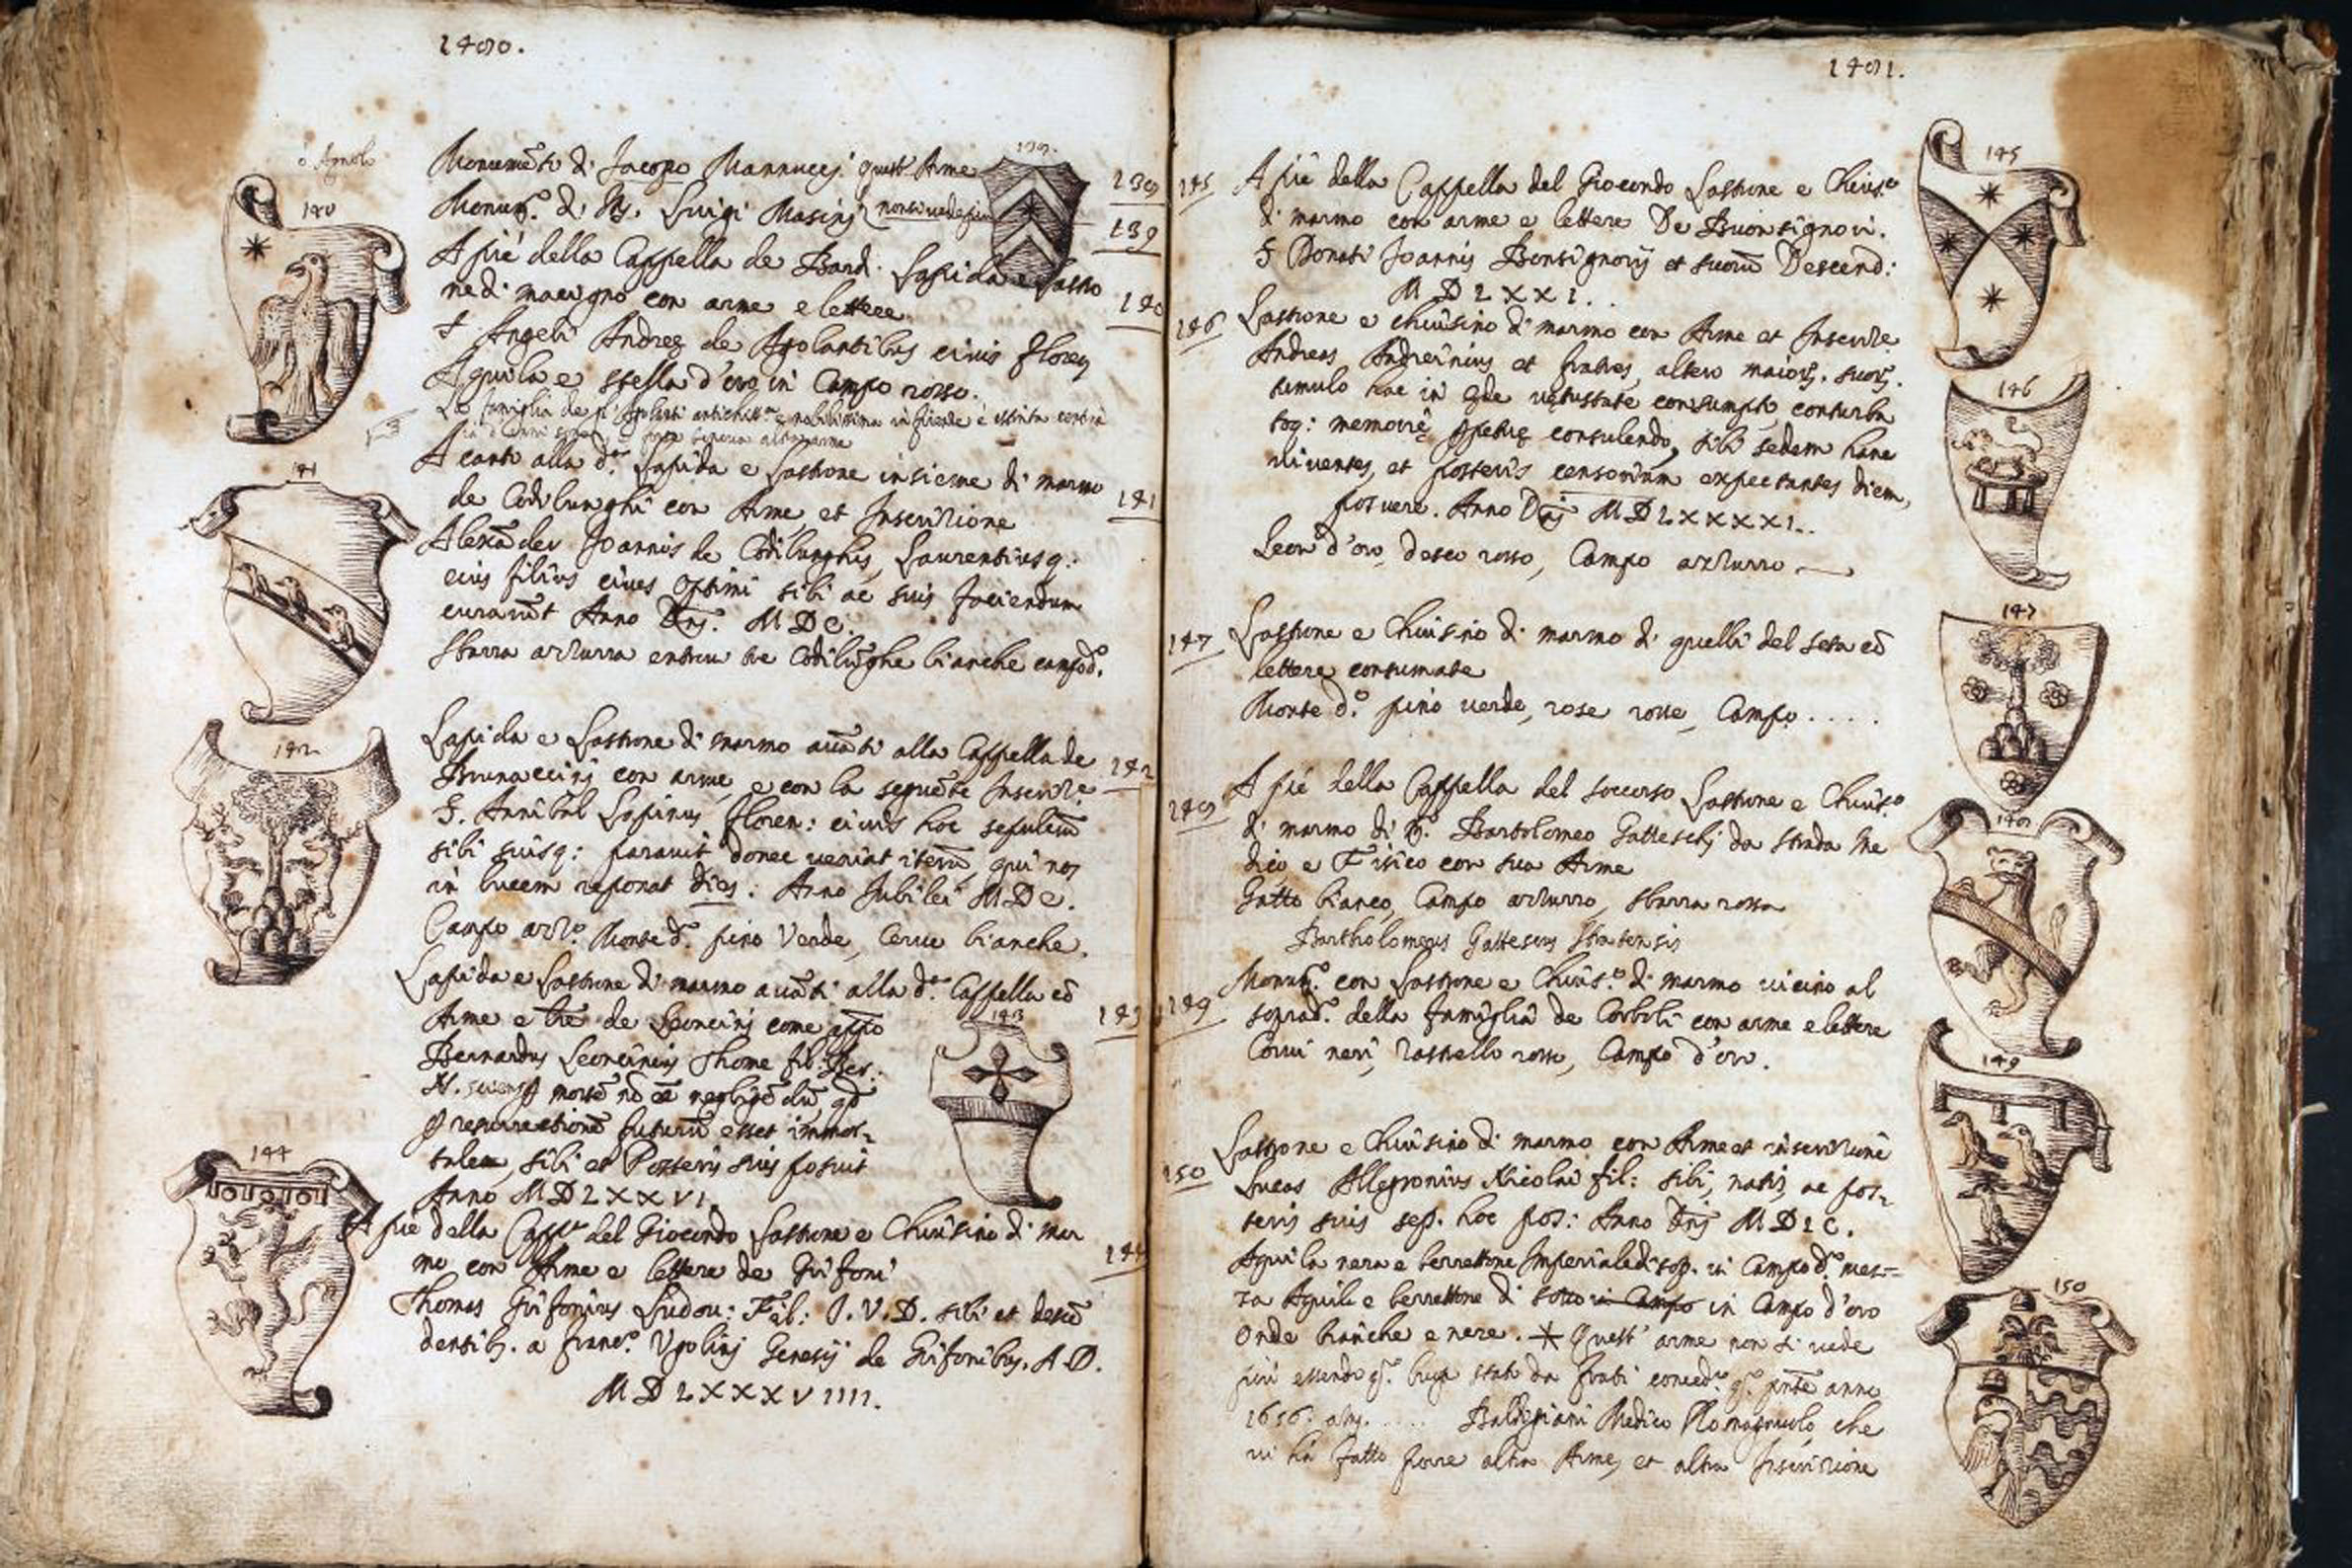 1480.
ò Agnolo
Monumẽto di Jacopo Mannucci quest'Arme
139.
138
Monum.º di M. Luigi Masini non si vede piu
139
A piè della Cappella de Bardi Lapida e Lastro
ne di macigno con arme e lettere
140
140
S. Angeli Andreę de Agolantibus civis Floren
Aquila e stella d'oro in Campo rosso.
La famiglia de gl'Agolanti antichiss.ª e nobilissima in firenze è estinta
altra arme
A canto alla d.ª Lapida e Lastrone insieme di marmo
141
141
de Codilunghi con Arme et Inscrizione
Alexãder Joannis de Codilunghis, Laurentiusq:
eius filius cives optimi sibi ac suis faciendum
curarũt Anno Dñj. MDC.
Sbarra azzurra entrovi tre Codilũghe bianche campo d.º
Lapida e Lastrone di marmo avãti alla Cappella de
142
142
Brunaccini con arme, e con la seguẽte Inscriz.e
S. Annibal Lapinus floren: civis hoc sepulcrũ
sibi suisq: paravit donec veniat iterũ, qui nos
in lucem reponat dies: Anno Jubilei MDC.
Campo azz.º Monte d.º pino Verde, Cervie bianche.
Lapida e Lastrone di marmo avãti alla d.ª Cappella cõ
143
143
Arme e lr̃e de Leoncini come app.º
Bernardus Leoncinus Thome fil:
mortẽ nõ negligẽdũ
resurrectionẽ futurũ esset immor-
talem, sibi et Posteris suis posuit
Anno MDLXXVI.
144
A piè della Capp.ª del Giocondo Lastrone e Chiusino di mar
144
mo con Arme e lettere de Grifoni
Thomas Grifonius Ludov: Fil: J.V.D. sibi et descẽ
dentib. a Franc.º Ugolini Genesij de Grifonibus. A D.
MDLXXXVIIII.
1481.
145
145
A piè della Cappella del Giocondo Lastrone e Chius.º
di marmo con arme e lettere De Buonsignori.
S Donati Joannis Bonsignorij et suorũ Descend:
MDLXXI.
146
146
Lastrone e chiusino di marmo con Arme et Inscriz.e
Andreas Andreinius et fratres, altero maior. suor.
tumulo hac in ęde vetustate consumpto, conturba
toq: memorię perpetuę consulendo, sibi sedem hanc
viventes, et posteris censorium expectantes diem,
posuere. Anno Dñj MDLXXXXI.
Leon d'oro, desco rosso, Campo azzurro
147
147
Lastrone e Chiusino di marmo di quelli del seta cõ
lettere consumate
Monte d.º pino verde, rose rosse, Campo . . . .
148
148
A piè della Cappella del soccorso Lastrone e Chius.º
di marmo di M. Bartolomeo Gatteschi da Strada Me
dico e Fisico con sua Arme
Gatto bianco, Campo azzurro, sbarra rossa
Bartholomeus Gattescus Stratensis
149
149
Monum.º con Lastrone e Chius.º di marmo vicino al
soprad.º della famiglia de Corboli con arme e lettere
Corvi neri, Rastrello rosso, Campo d'oro.
150
150
Lastrone e Chiusino di marmo con Arme et inscrizione
Lucas Allegronius Nicolai fil: sibi, natis, ac pos-
teris suis sep. hoc pos: Anno Dñj MDIC.
Aquila nera e berrettone Imperiale di sop. in Campo d.º mez-
za Aquila e berrettone di sotto in Campo in Campo d'oro
Onde bianche e nere. * Quest'arme non si vede
più essendo stata da frati anno
1656. Baldigiani Medico Romagnuolo che
vi hà fatto porre altra Arme, et altra Inscrizione